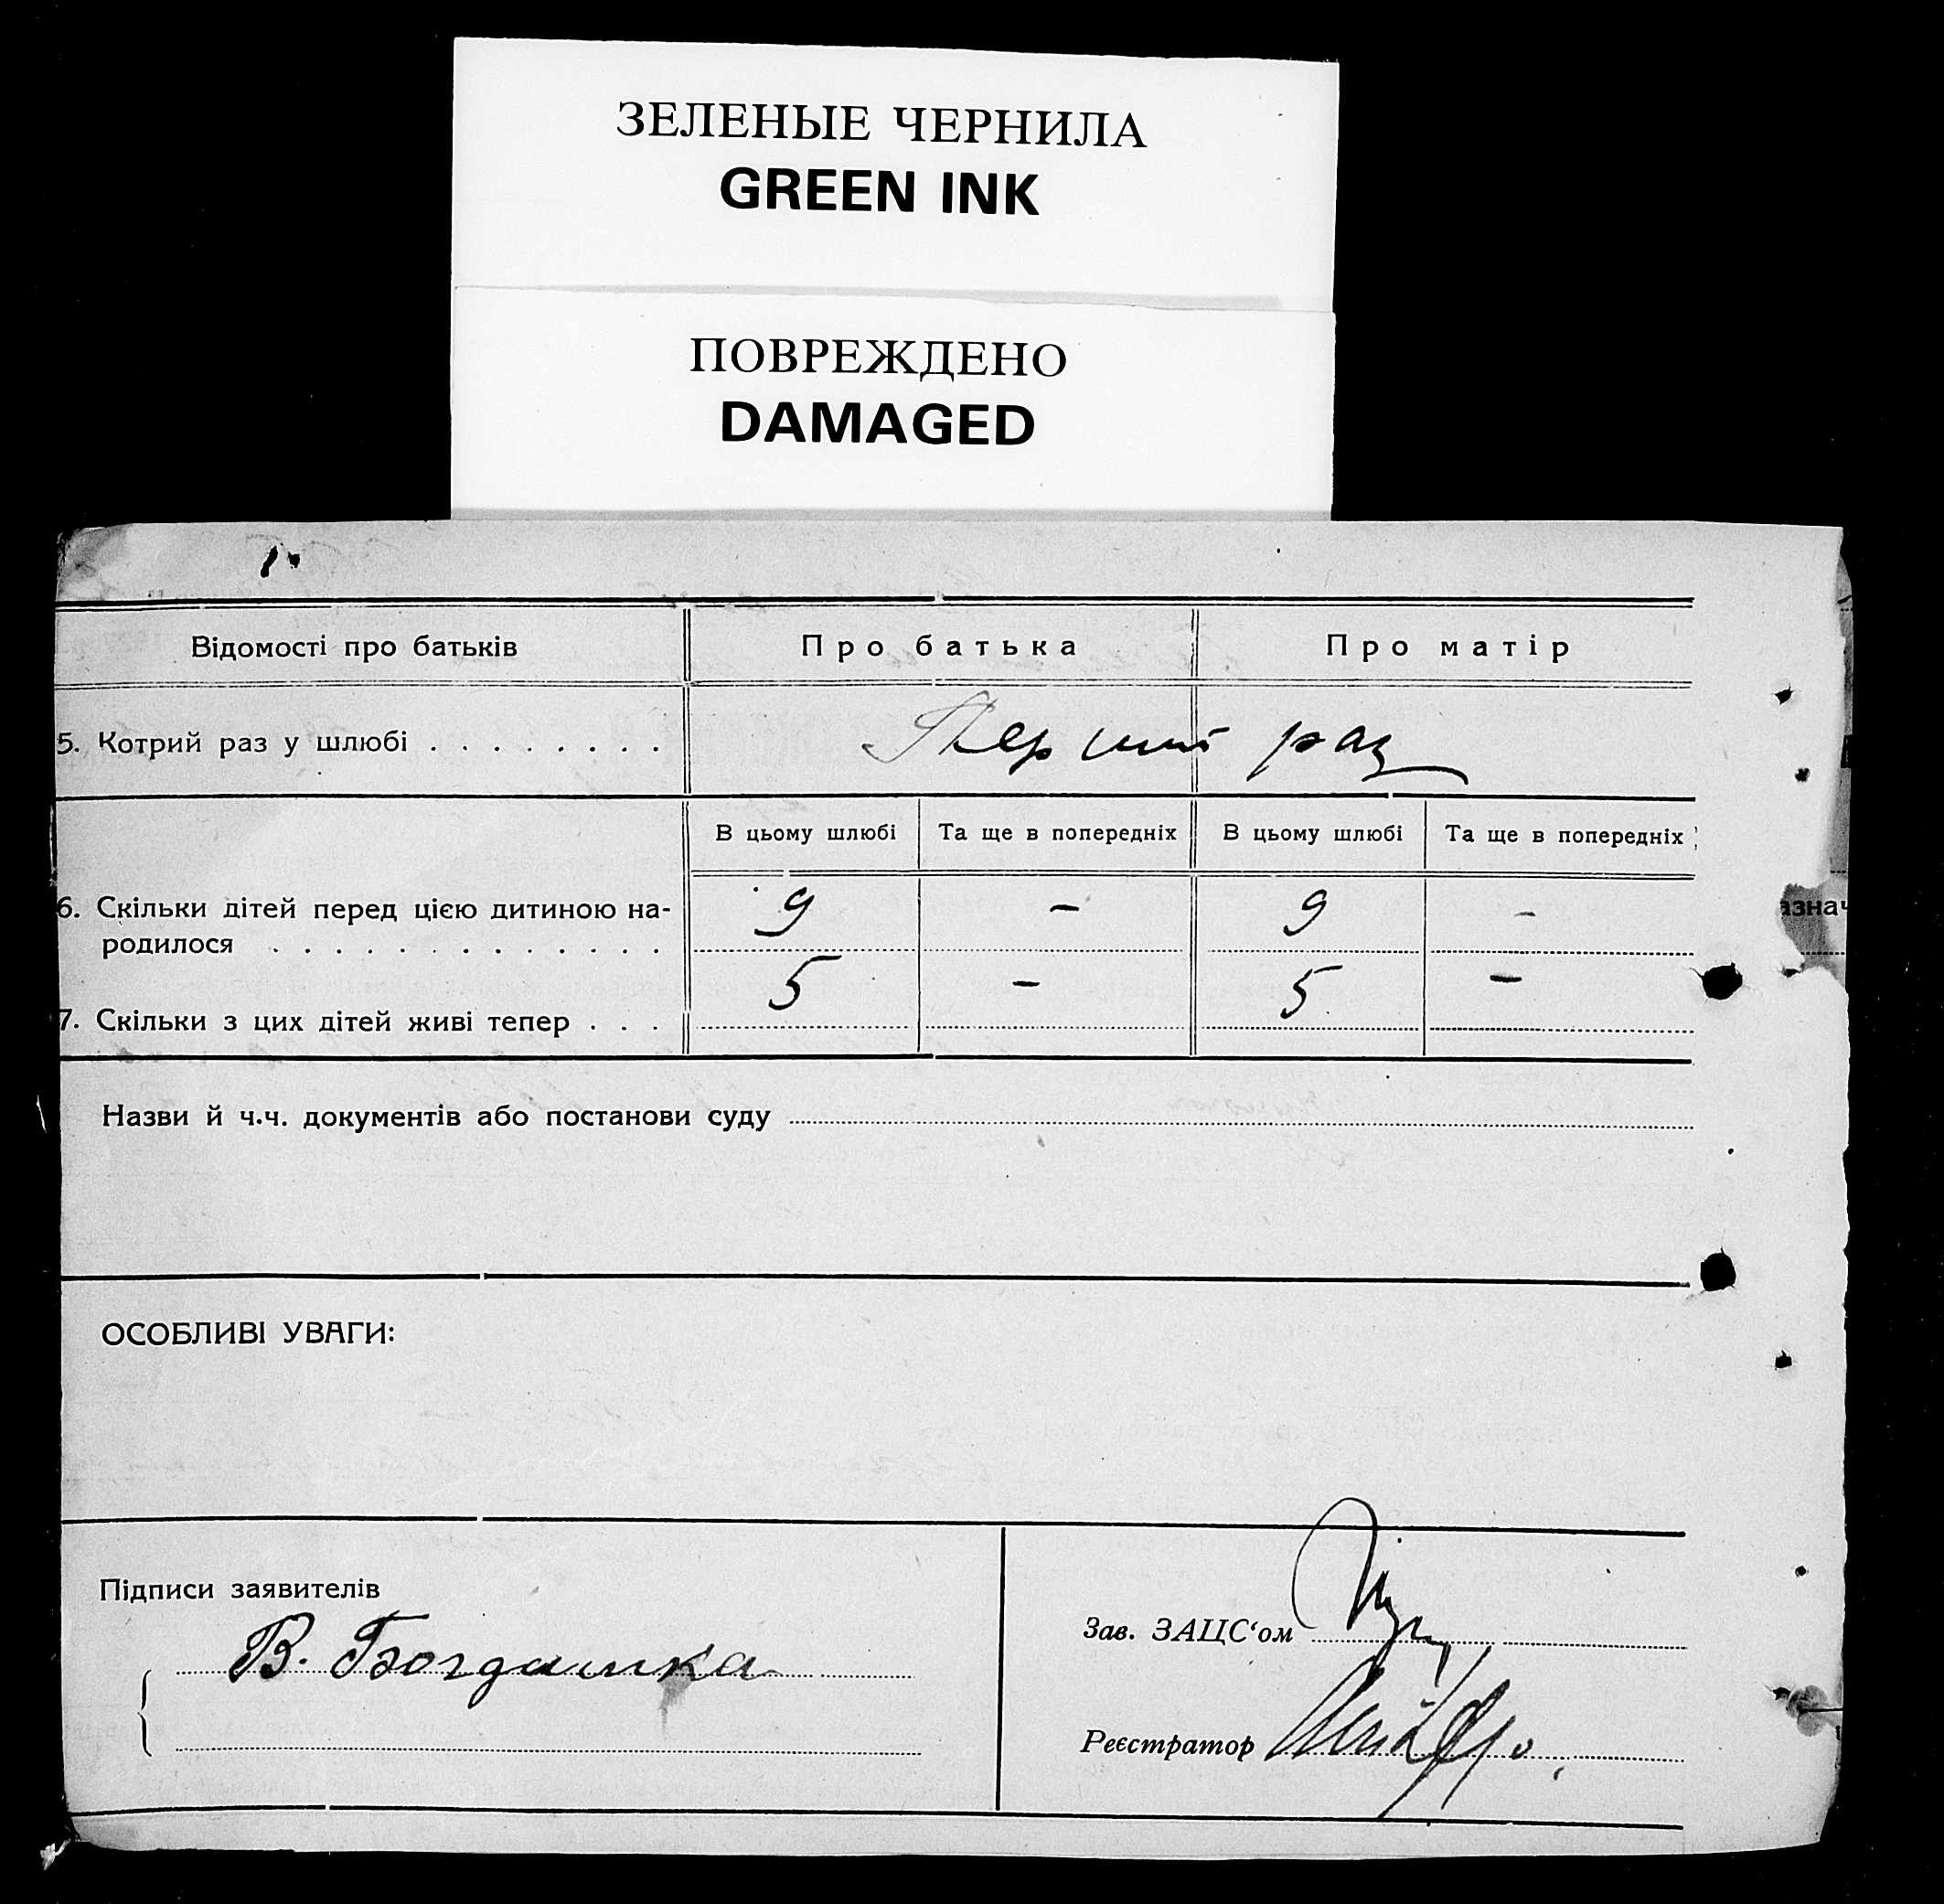 ЗЕЛЕНЫЕ ЧЕРНИЛА
GREEN INK
ПОВРЕЖДЕНО
DAMAGED
Відомості про батьків Про батька Про матір
5. Котрий раз у шлюбі . . . . . . . . Перший раз
В цьому шлюбі Та ще в попередніх В цьому шлюбі Та ще в попередніх
6. Скільки дітей перед цією дитиною на- 9 – 9 –
родилося . . . . . . . . . . . . .
азнач
7. Скільки з цих дітей живі тепер . . . 5 – 5 –
Назви й ч.ч. документів або постанови суду
ОСОБЛИВІ УВАГИ:
Підписи заявителів
Зав. ЗАЦС‘ом
В. Богдашка
Реєстратор